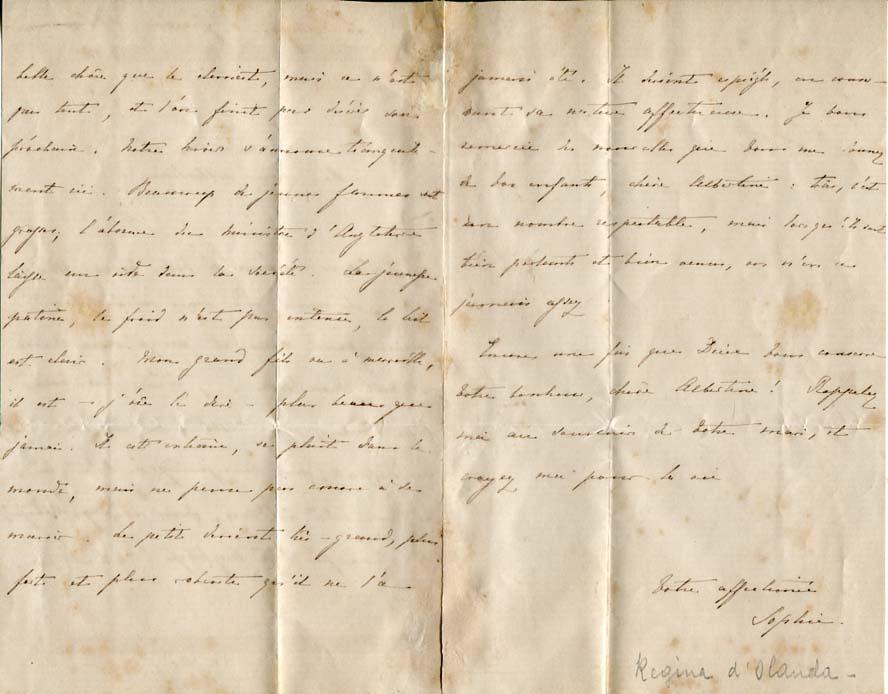 belle chose que le clément, mais ce n'est
pas tout, et l'on finit par désirer son
prochain. Notre hiver s'annonce
ment ici. Beaucoup de jeunes femmes sont
grosses, l'absence du ministre d'Angleterre
laisse un vide dans la société. La jeunesse
patine, le froid n'est pas intense, le ciel
est clair. Mon grand fils va à merveille,
il est - j'ose le dire - plus beau que
jamais. Il est se plaît dans le
monde, mais ne pense pas encore à se
marier. Le petit devient très-grand, plus
fort et plus robuste qu'il ne l'a
jamais été. Il devient espiègle, en conser-
vant sa nature affectueuse. Je vous
remercie des nouvelles que vous me donnez
de vos enfants, chère Albertine : c'est
un nombre respectable, mais lorsqu'ils sont
bien portants et bien venus, on n'en a
jamais assez
Encore une fois que Dieu vous conserve
votre bonheur, chère Albertine! Rappelez
moi au souvenir de votre mari, et
croyez moi pour la vie
Votre affectionnée
Sophie.
Regina d'Olanda -